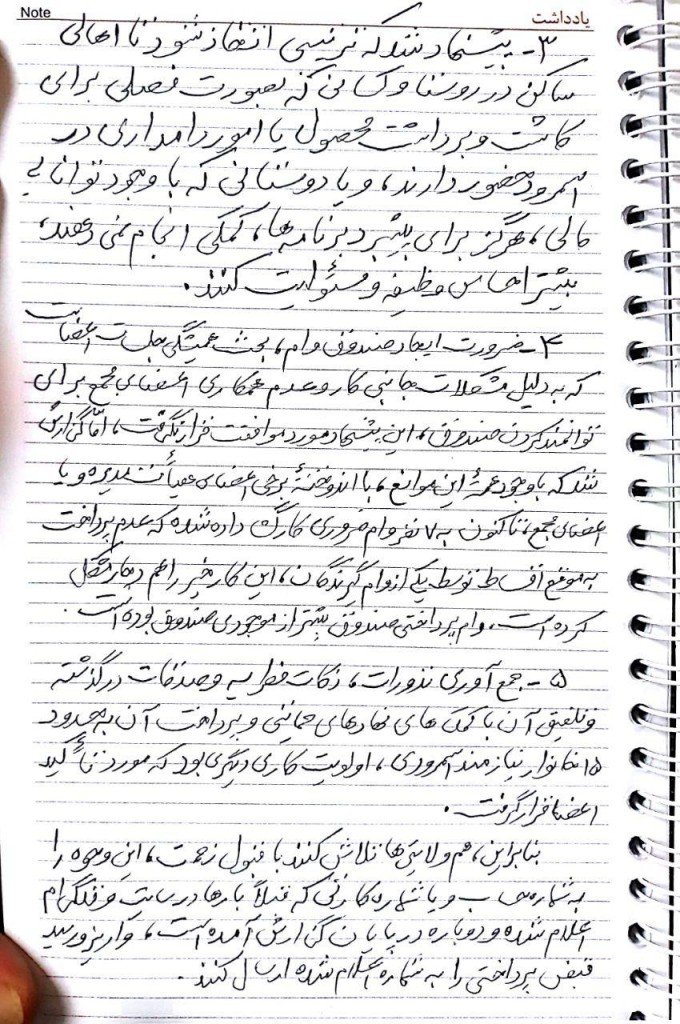 Note
یادداشت
۳- پیشنهاد شد که ترتیبی اتخاذ شود تا اهالی
ساکن در روستا و کسانی که بصورت فصلی برای
کاشت و برداشت محصول یا امور دامداری در
اسمرود حضور دارند، و یا دوستانی که با وجود توانایی
مالی، هرگز برای پیشبرد برنامه ها، کمکی انجام نمی دهند،
بیشتر احساس وظیفه و مسئولیت کنند.
۴- ضرورت ایجاد صندوق وام، بحث همیشگی جلسات اعضاست
که به دلیل مشکلات جانبی کار و عدم همکاری اعضای مجمع برای
توانمند کردن صندوق، این پیشنهاد مورد موافقت قرار نگرفت، امّا گزارش
شد که با وجود همۀ این موانع، با اندوختۀ برخی اعضای هیأت مدیره و یا
اعضای مجمع، تاکنون به ۷ نفر وام ضروری کارگ داده شده که عدم پرداخت
به موقع اقساط توسط یکی از وام گیرندگان، این کار خیر را هم دچار مشکل
کرده است. وام پرداختی صندوق بیشتر از موجودی صندوق بوده است.
۵- جمع آوری نذورات، زکات فطریه و صدقات درگذشته
و تلفیق آن با کمک های نهادهای حمایتی و پرداخت آن به حدود
۱۵ خانوار نیازمند اسمرودی، اولویت کاری دیگری بود که مورد تأکید
اعضا قرار گرفت.
بنابراین، هم ولایتی ها تلاش کنند با قبول زحمت، این وجوه را
به شماره حساب و یا شماره کارتی که قبلاً بارها در سایت و تلگرام
اعلام شده و دوباره در پایان گزارش آمده است، واریز و رسید
قبض پرداختی را به شماره اعلام شده ارسال کنند.